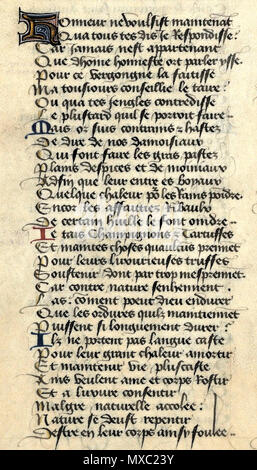 Honneur ne voulsist maintenāt
Qua tous tes dis je Respondisse :
Car jamais nest appartenant
Que dhōme honneste ort parler ysse.
Pour ce vergongne la faitisse
Ma tousiours conseillie le taire :
Ou qua tes jengles contredisse
Le plustard quil se porroit faire
Mais or suis contrains et hastez
De dire de nos damoisiaux
Qui font faire les gras pastez
Plains despices et de moiniaux
Adfin que leur entrés boyaux
Quelque chaleur pour les Rains poindre.
Encor les affaitties Ribaulx
De certain huille se font oindre
Et tous Champignons et Cartusses
Et maintes choses quaulcūs prennēt
Pour leurs livourieuses trusses
Soustenir dont par trop mesprennēt.
Car contre nature sehennent.
Las : coment poeut dieu endurer
Que les ordures quilz maintiennēt
Puissent si longuement durer :
Ilz ne portent pas langue caste
Pour leur grant chaleur amortir
Et maintenir vie plus caste
Ains veulent ame et corps Rostir
Et a livoure consentir
Malgre naturelle accolee :
Nature se deust repentir
Destre en leur corps ainsy foulee
alamy
MXC23Y